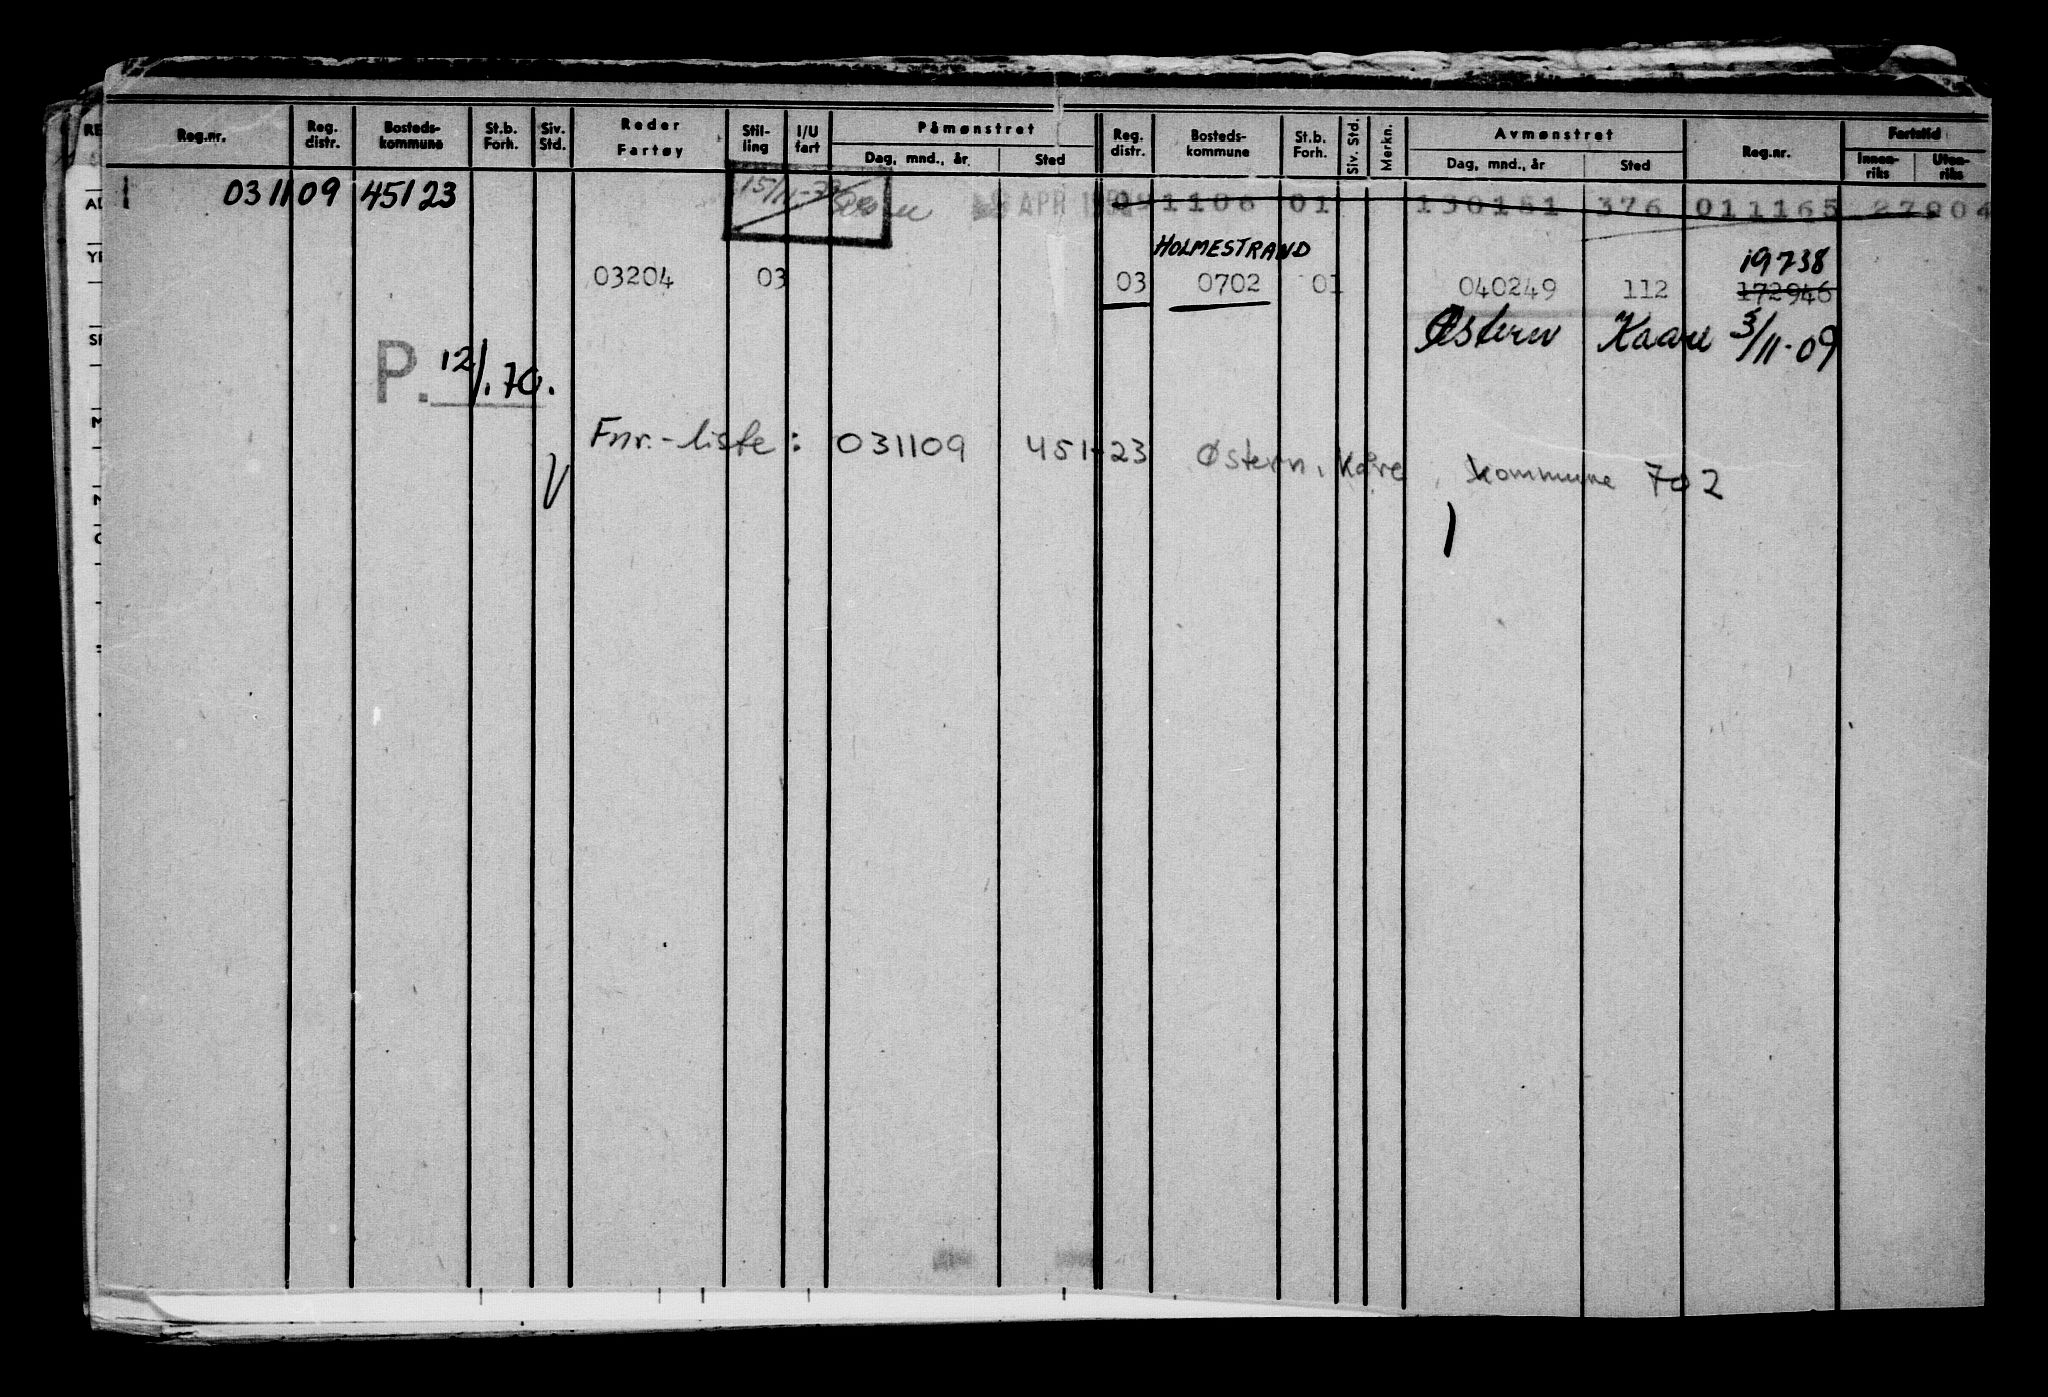 Reg.nr. Reg. distr. Bosteds- kommune St.b. Forh. Siv. Std. Reder Fartøy Stil- ling I/U fart Påmønstret Dag, mnd., år Sted Reg. distr. Bosteds- kommune St.b. Forh. Siv. Std. Merkn. Avmønstret Dag, mnd., år Sted Reg.nr. Fartstid Innen- riks Uten- riks
031109 45123 APR 1106 01 130161 376 011165 27904
HOLMESTRAND 19738
03204 03 03 0702 01 040249 112 172946
Østern Kaare 3/11-09
P. 12/1.70.
Fnr.-liste: 031109 451 23 Østern, Kåre, kommune 702